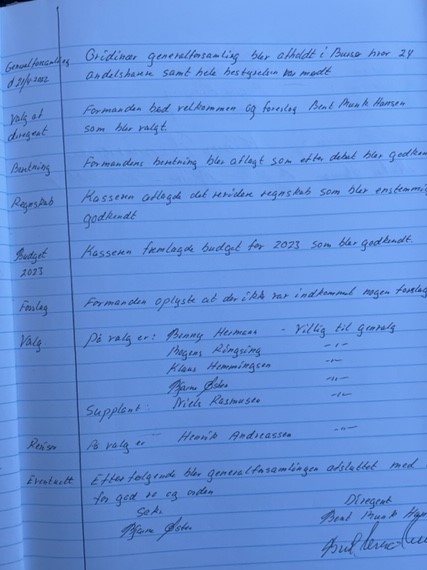 Generalforsamling Ordinær generalforsamling blev afholdt i Buresø hvor 24
andelshavere samt hele bestyrelsen var mødt
Valg af Formanden bød velkommen og foreslog Bent Munk Hansen
dirigent som blev valgt.
Beretning Formandens beretning blev aflagt som efter debat blev godkendt
Regnskab Kasseren aflagde det reviderede regnskab som blev enstemmig
godkendt
Budget Kasseren fremlagde budget for 2023 som blev godkendt.
2023
Forslag Formanden oplyste at der ikke var indkommet nogen forslag
Valg På valg er: Benny Hermann - Villig til genvalg
Mogens Ringsing -"-
Klaus Hemmingsen -"-
Bjarne Øster -"-
Supplant: Niels Rasmussen -"-
Revisor På valg er - Henrik Andreassen -"-
Eventuelt Efterfølgende blev generalforsamlingen afsluttet med
for god ro og orden
Sekr Dirigent
Bjarne Øster Bent Munk